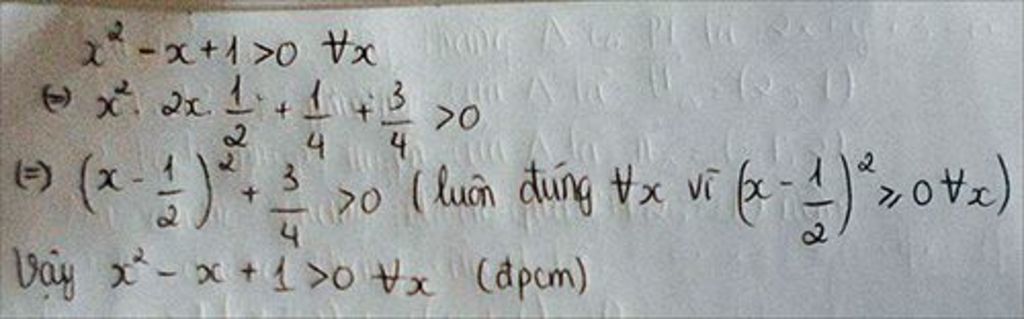 x² - x + 1 > 0 ∀x
(=) x² . 2x . 1/2 + 1/4 + 3/4 > 0
(=) (x - 1/2)² + 3/4 > 0 (luôn đúng ∀x vì (x - 1/2)² ≥ 0 ∀x)
Vậy x² - x + 1 > 0 ∀x (đpcm)